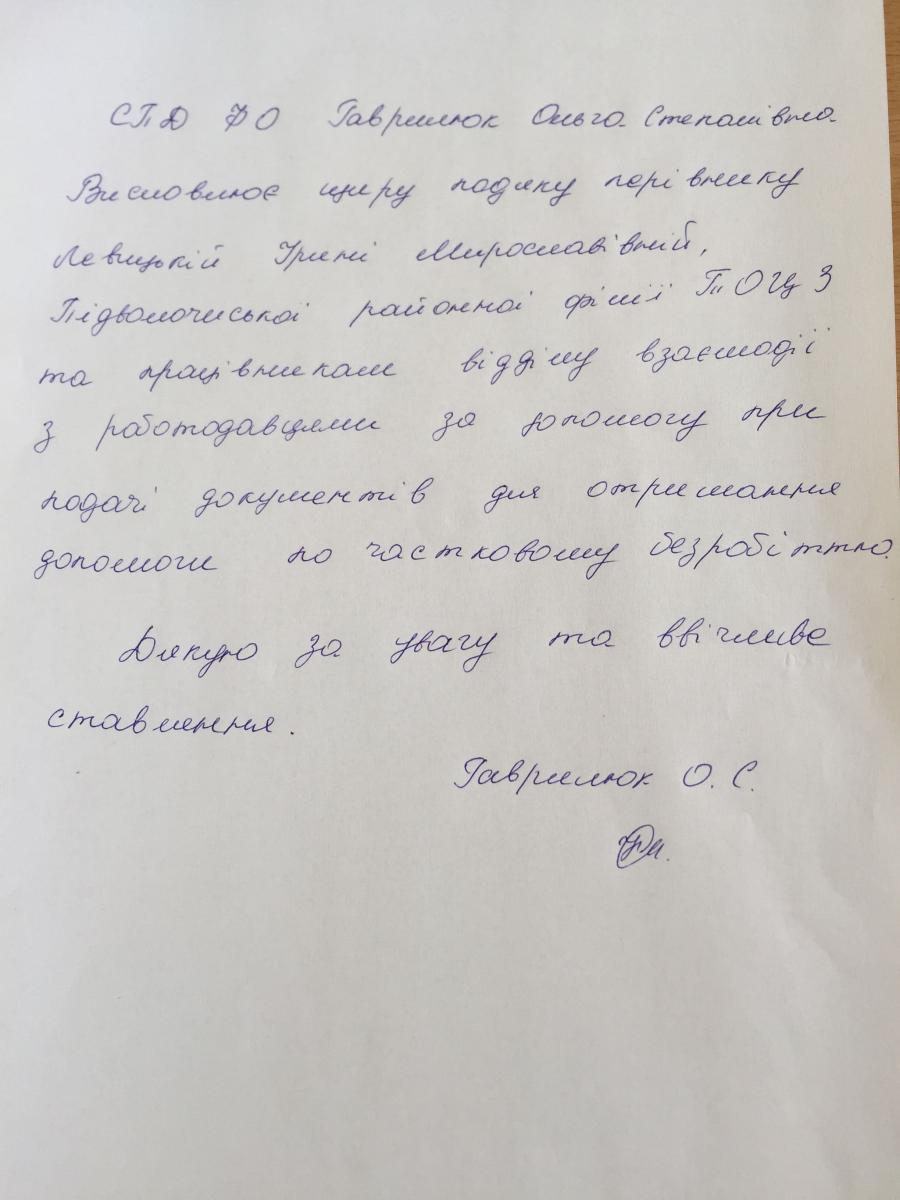 СПД ФО Гаврилюк Ольга Степанівна
Висловлює щиру подяку керівнику
Левицькій Ірині Мирославівній,
Підволочиської районної філії ТОЦЗ
та працівникам відділу взаємодії
з работодавцями за допомогу при
подачі документів для отримання
допомоги по частковому безробіттю.
Дякую за увагу та ввічливе
ставлення.
Гаврилюк О. С.